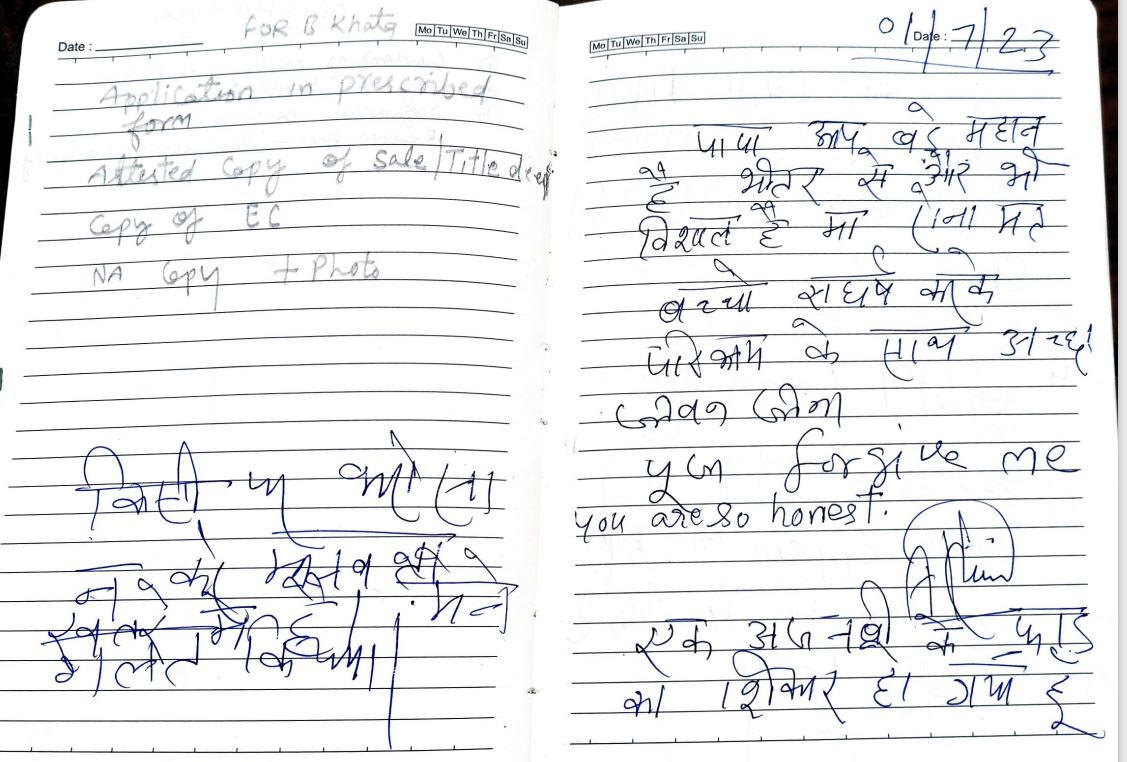 FOR B Khata
Mo Tu We Th Fr Sa Su
Date :
Application in prescribed
form
Attested Copy of Sale/Title deed
Copy of EC
NA Copy + Photo
किसी पर भरोसा
गलत
Mo Tu We Th Fr Sa Su
Date : 01/7/23
पापा आप बड़े महान
हैं भीतर से और भी
विशाल हैं मां रोना मत
बच्चो संघर्ष करके
परिश्रम के साथ अच्छा
जीवन जीना
forgive me
you are so honest.
एक अजनबी के फ्रॉड
का शिकार हो गया हूं